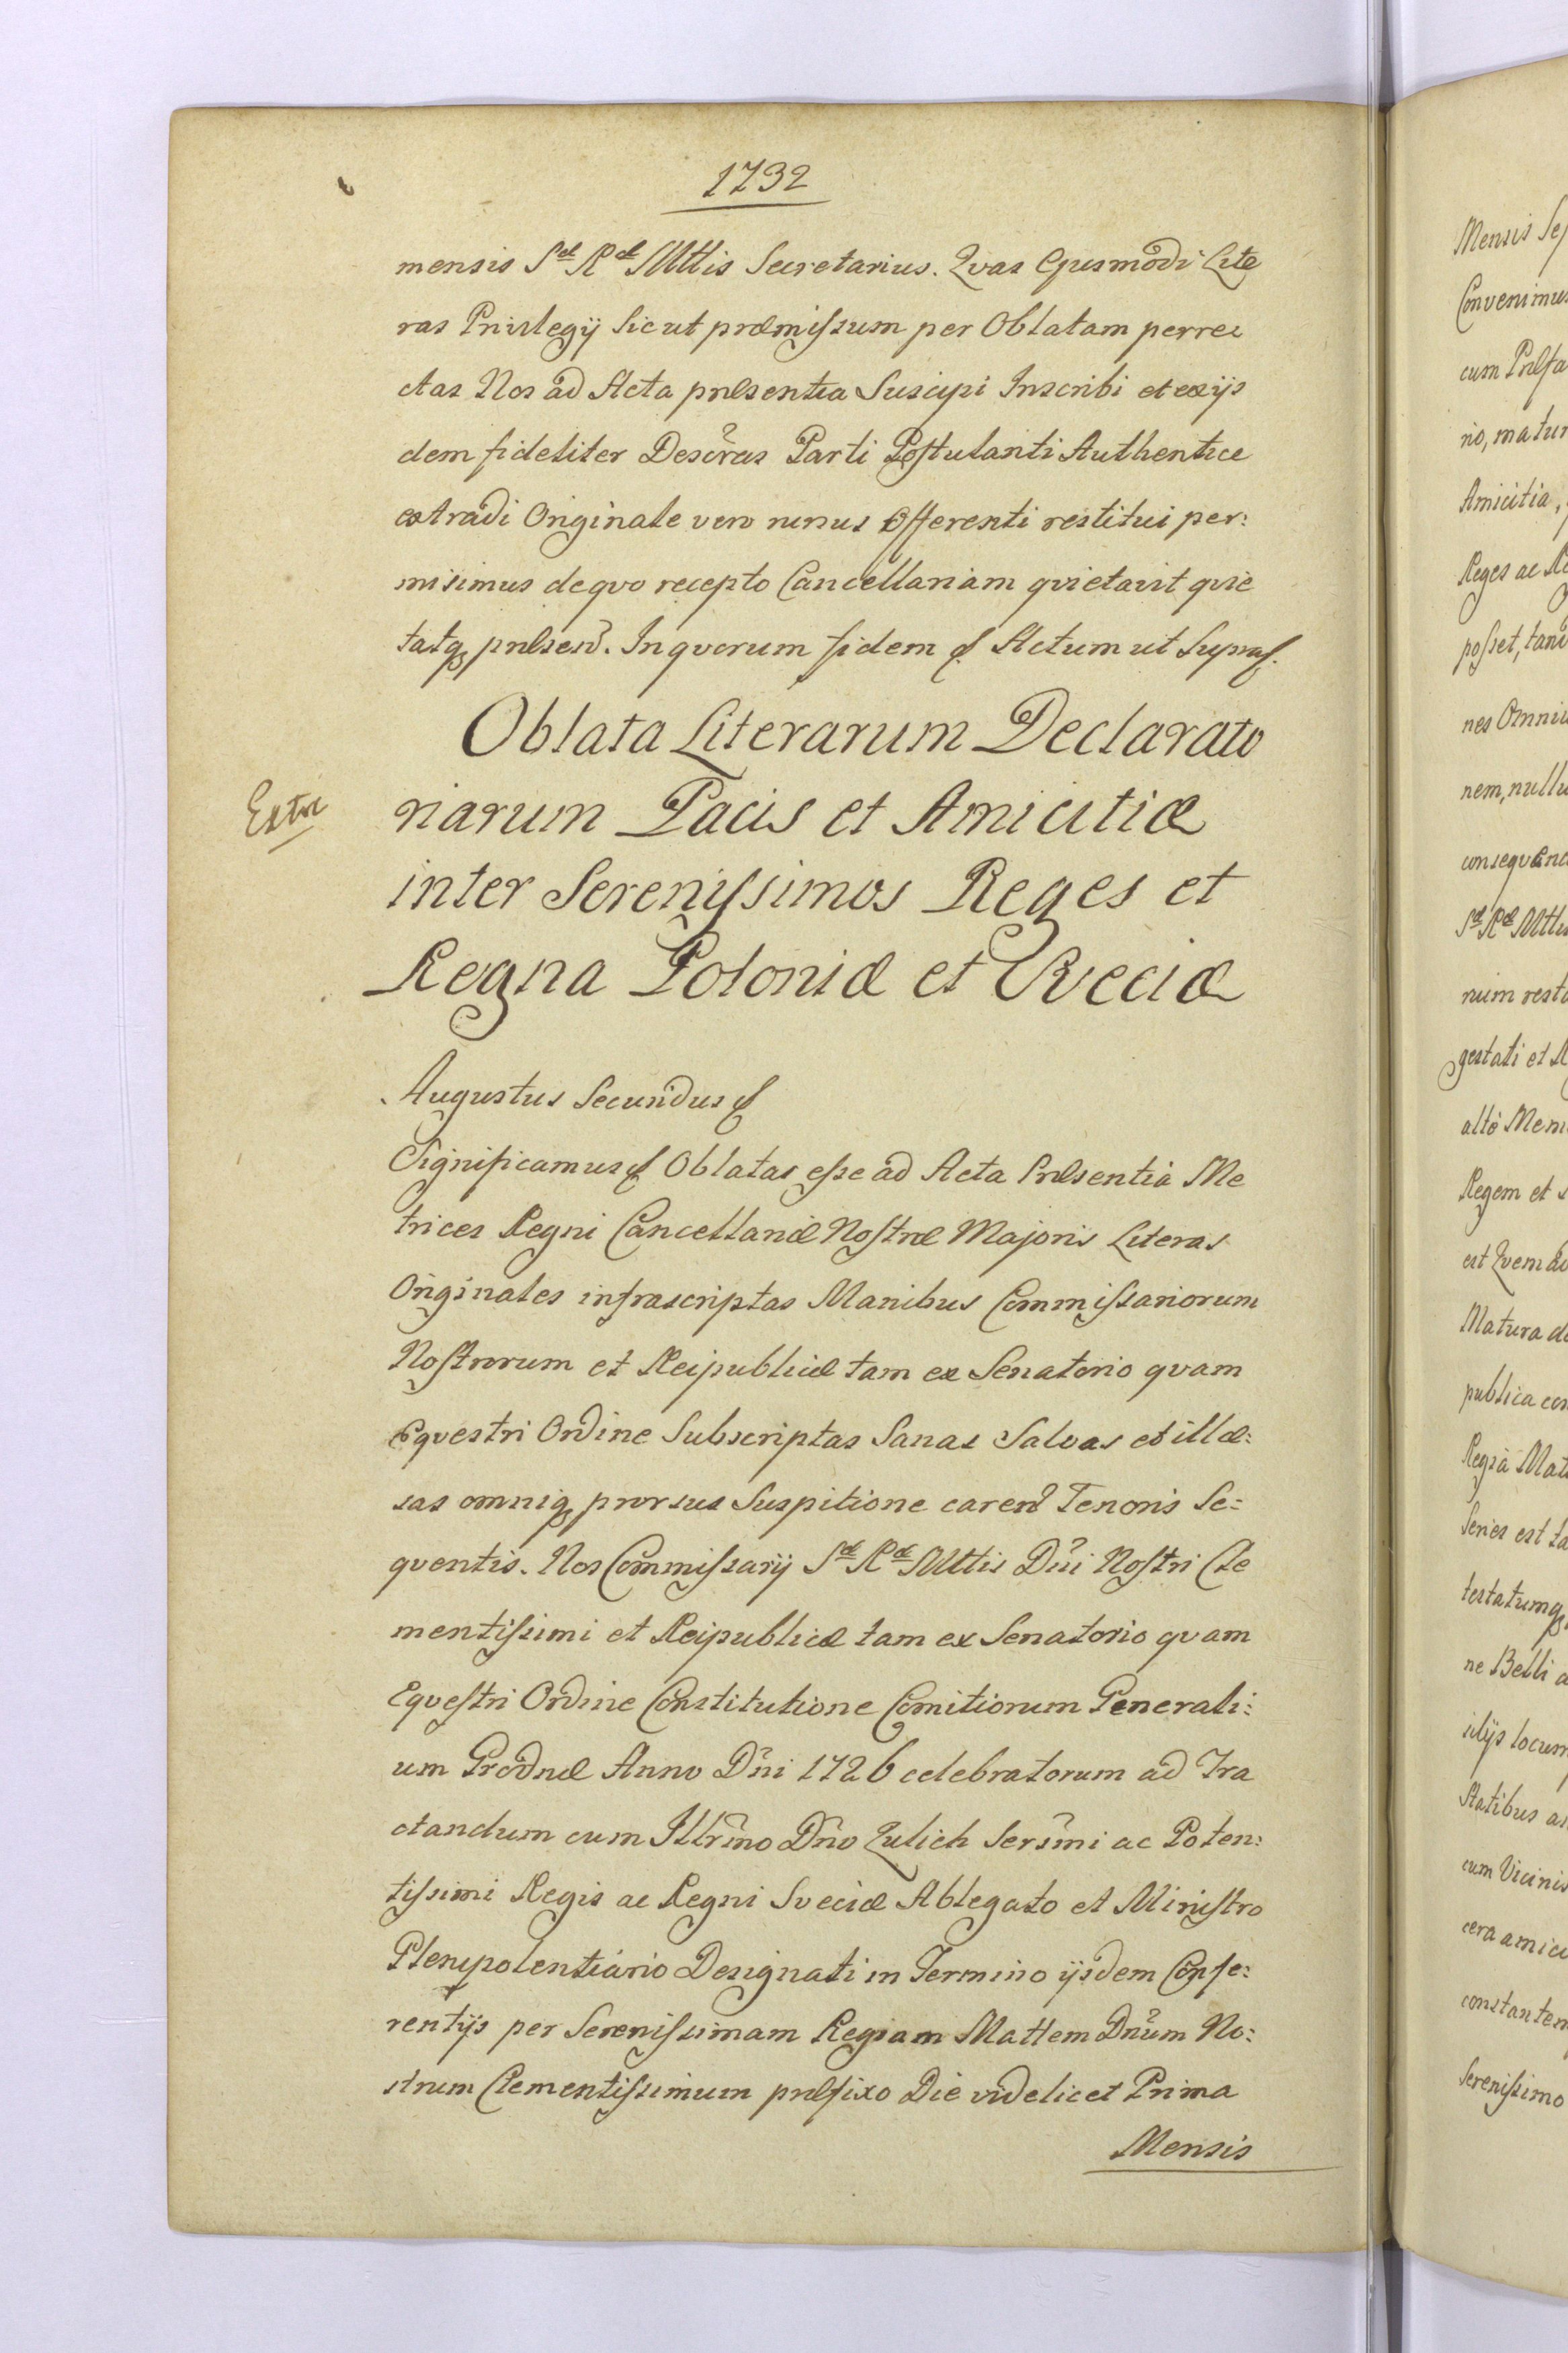 1732
mensis Sæ Ræ Mttis Secretarius. Qvas Ejusmodi Lite
ras Privilegij Sicut præmissum per Oblatam perre
ctas Nos ad Acta præsentia Suscipi Inscribi et ex ijs
dem fideliter Descrãs Parti Postulanti Authentice
extradi Originale vero rursus Offerenti restitui per:
misimus de qvo recepto Cancellariam qvietavit qvie
tatq præsen. In qvorum fidem Actum ut Supra.
Oblata Literarum Declarato
Extr
riarum Pacis et Amicitiæ
inter Serenissimos Reges et
Regna Poloniæ et Sveciæ
Augustus Secundus
Significamus Oblatas esse ad Acta Præsentia Me
trices Regni Cancellariæ Nostræ Majoris Literas
Originales infrascriptas Manibus Commissariorum
Nostrorum et Reipublicæ tam ex Senatorio qvam
Eqvestri Ordine Subscriptas Sanas Salvas et illæ:
sas omniq prorsus Suspitione caren Tenoris Se:
qventis. Nos Commissarij Sæ Ræ Mttis Dñi Nostri Cle
mentissimi et Reipublicæ tam ex Senatorio qvam
Eqvestri Ordine Constitutione Comitiorum Generali:
um Grodnæ Anno Dñi 1726 celebratorum ad Tra
ctandum cum Illr̃mo Dño Zulich Serm̃i ac Poten:
tissimi Regis ac Regni Sveciæ Ablegato et Ministro
Plenipotentiario Designati in Termino ijsdem Confe:
rentijs per Serenissimam Regiam Mattem Dñum No:
strum Clementissimum præfixo Die videlicet Prima
Mensis
Convenimus
Amicitia,
posset,
Regem et
Matura
publica
cum Vicinis
Serenissimo